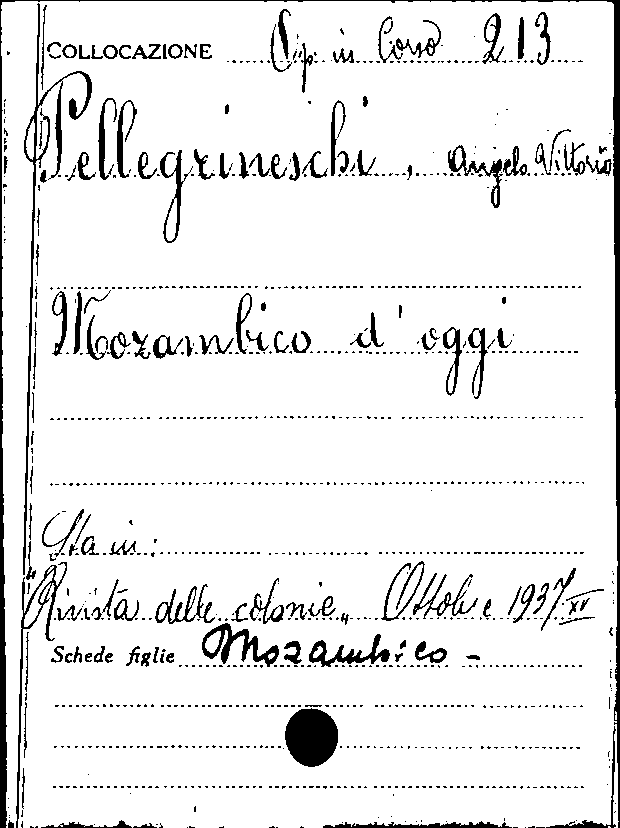 COLLOCAZIONE Op. in Corso 213
Pellegrineschi, Angelo Vittorio
Mozambico d'oggi
Sta in:
"Rivista delle colonie„ Ottobre 1937 XV
Schede figlie Mozambico -